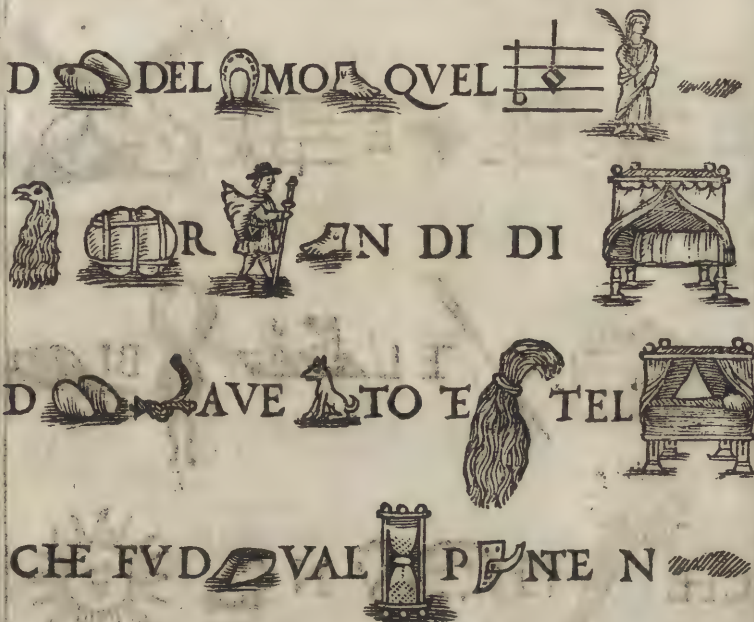 D DEL MO QVEL
R N DI DI
D AVE TO E TEL
CHE FV D VAL P NTE N